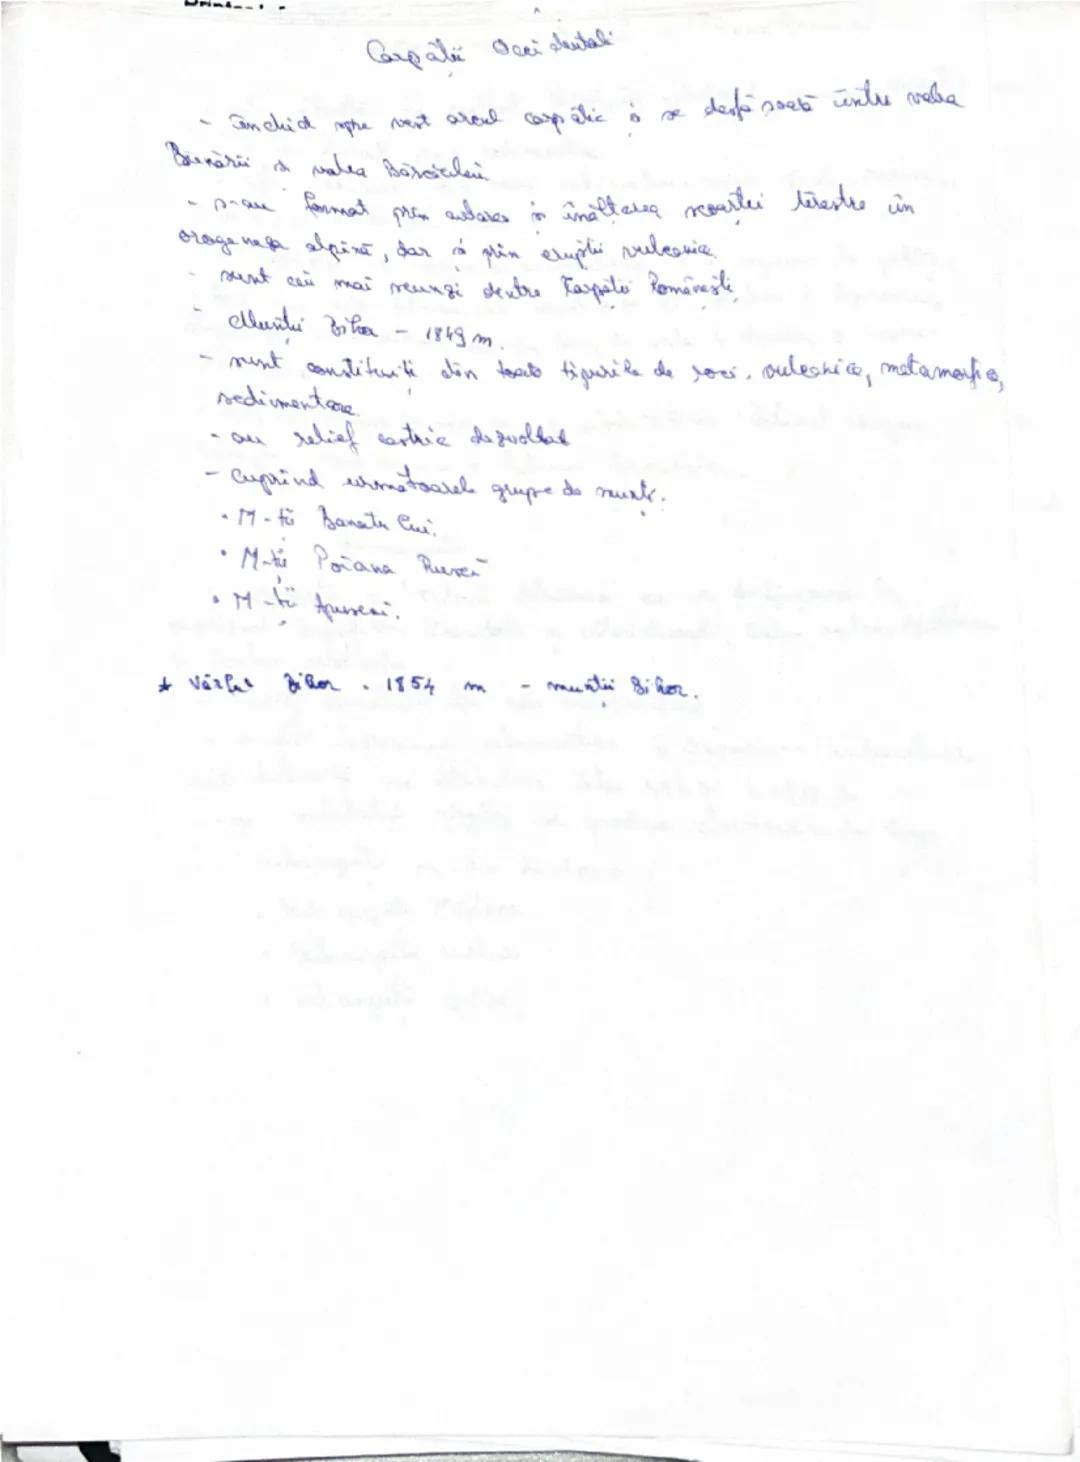 Carpații Occidentali
- închid spre vest arcul carpatic și se desfășoară între valea
Dunării și valea Barcăului
- s-au format prin cutarea și înălțarea scoarței terestre în
orogeneza alpină, dar și prin erupții vulcanice
- sunt cei mai scunzi dintre Carpații Românești
- Munții Bihor - 1849 m.
- sunt constituiți din toate tipurile de roci. vulcanice, metamorfice,
sedimentare
- au relief carstic dezvoltat
- Cuprind următoarele grupe de munți.
• M-ții Banatului.
• M-ții Poiana Ruscă
• M-ții Apuseni.
* Vârful Bihor . 1854 m - munții Bihor.